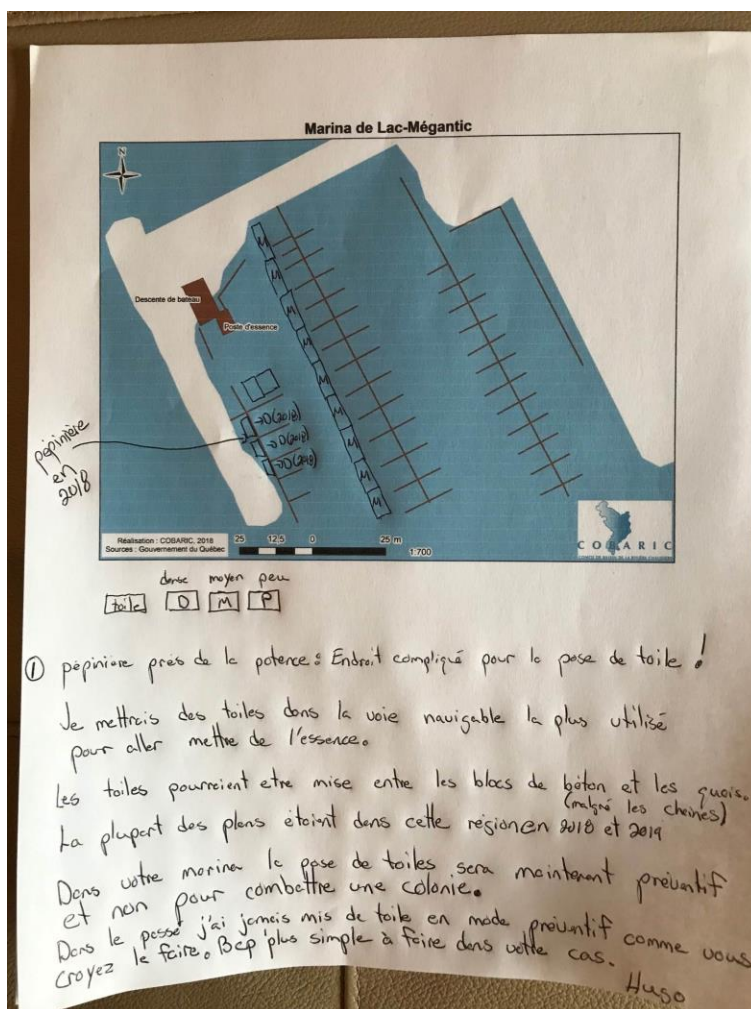 Marina de Lac-Mégantic
N
Descente de bateau
Poste d'essence
M
M
M
M
M
M
M
M
M
→D(2018)
→D(2018)
→D(2018)
pépinière
en
2018
Réalisation : COBARIC, 2018
Sources : Gouvernement du Québec
25 12,5 0 25 m
1:700
COBARIC
dense moyen peu
toile D M P
① pépinière près de la potence : Endroit compliqué pour la pose de toile !
Je mettrais des toiles dans la voie navigable la plus utilisé
pour aller mettre de l'essence.
Les toiles pourraient etre mise entre les blocs de béton et les quais.
(malgré les chaines)
La plupart des plans étaient dans cette région en 2018 et 2019
Dans votre marina la pose de toiles sera maintenant préventif
et non pour combattre une colonie.
Dans le passé j'ai jamais mis de toile en mode préventif comme vous
croyez le faire. Bcp plus simple à faire dans votre cas.
Hugo